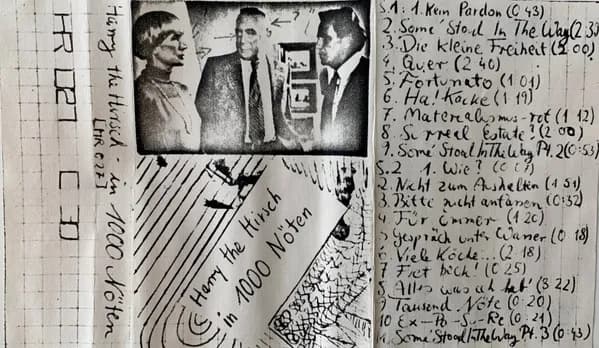 HR 027 C 30
Harry the Hirsch - in 1000 Nöten
[HR 027]
Harry the Hirsch
in 1000 Nöten
S.1: 1. Kein Pardon (0:43)
2. Some' Stood In The Way (2:3
3. Die kleine Freiheit (2:00)
4. Quer (2:40)
5. Fortunato (1:01)
6. Ha! Köcke (1:19)
7. Materialismus-rot (1:12)
8. Surreal Estate? (2:00)
9. Some' Stood In The Way Pt. 2 (0:53)
S.2 1. Wie? (0:07)
2. Nicht zum Aushalten (1:51)
3. Bitte nicht anfassen (0:32)
4. Für immer (1:20)
5 Gespräch unter Wasser (0:18)
6. Viele Köche... (2:18)
7 böck! (0:25)
Alles was (3:22)
9 Tausend Nöte (0:20)
10 Ex-Po-S.-Re (0:21)
Some' Stood In The Way Pt. 3 (0:43)